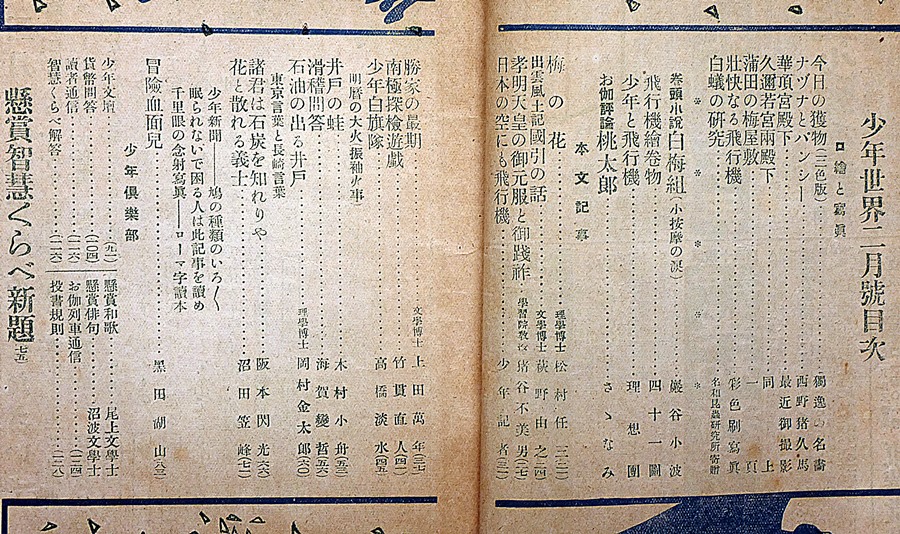 少年世界二月號目次
繪と寫眞
今日の獲物(三色版)………獨逸の名畵
ナヅナとパンシー………西野猪久馬
華頂宮殿下………最近御撮影
久邇若宮兩殿下………同上
蒲田の梅屋敷………一頁
壯快なる飛行機………彩色刷寫眞
白蟻の研究………名和昆蟲研究所寄贈
卷頭小說 白梅組(小按摩の淚)………巖谷小波
飛行機繪卷物………四十一圖
少年と飛行機………理想團
お伽評論 桃太郎………さゝなみ
本文記事
梅の花………理學博士 松村任三
出雲風土記國引の話………文學博士 萩野由之
孝明天皇の御元服と御踐祚………學習院教授 猪谷不美男
日本の空にも飛行機………少年記者
勝家の最期………文學博士 上田萬年
南極探檢遊戲………竹貫直人
少年白旗隊………高橋淡水
明曆の大火(振袖火事)
井戶の蛙………木村小舟
滑稽問答………海賀變哲
石油の出る井戶………理學博士 岡村金太郎
東京言葉と長崎言葉
諸君は石炭を知れりや………阪本閃光
花と散れる義士………沼田笠峰
少年新聞――鳩の種類のいろ〱
眠られないで困る人は此記事を讀め
千里眼の念射寫眞――ローマ字讀本
冒險血面兒………黑田湖山
少年俱樂部
少年文壇………(九一)
貨幣問答………(一〇四)
讀者通信………(一一六)
智慧くらべ解答………(一二六)
懸賞和歌………尾上文學士
懸賞俳句………沼波文學士
お伽列車通信………(一二四)
投書規則………(一二八)
懸賞智慧くらべ新題(七五)